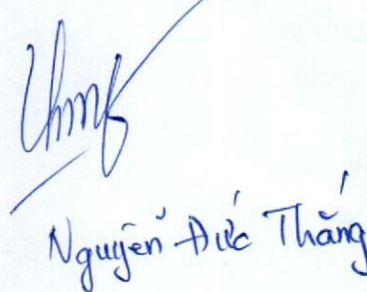 Nguyễn Đức Thắng